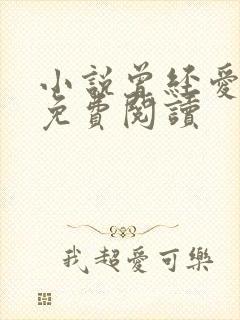 小說曾经愛
免費閱讀
我超愛可樂